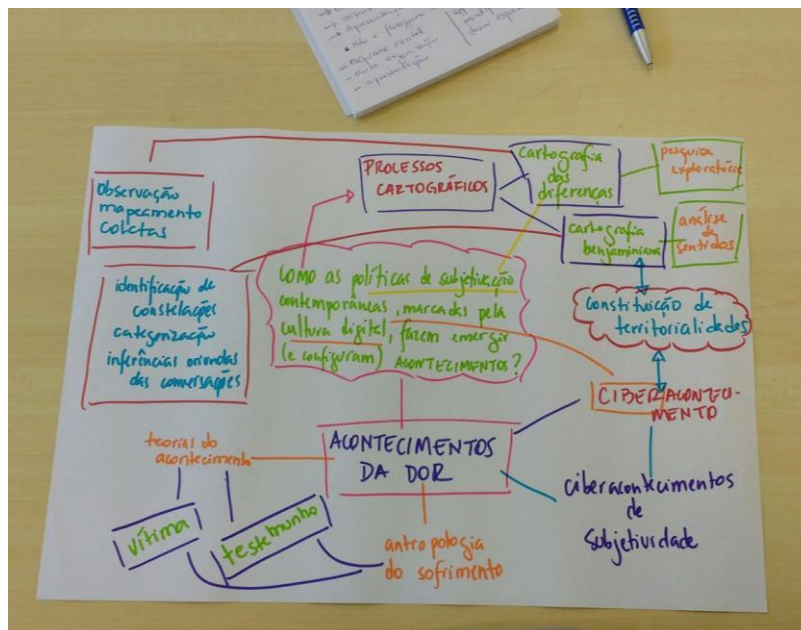 PROCESSOS
CARTOGRÁFICOS
cartografia
das
diferenças
pesquisa
exploratória
observação
mapeamento
coletas
cartografia
benjaminiana
análise
de
sentidos
identificação de
constelações
categorização
inferências oriundas
das conversações
COMO as políticas de subjetivação
contemporâneas, marcadas pela
cultura digital, fazem emergir
(e configuram) ACONTECIMENTOS?
constituição de
territorialidades
CIBERACONTECI-
MENTO
teorias do
acontecimento
ACONTECIMENTOS
DA DOR
ciberacontecimentos
de
subjetividade
vítima
testemunho
antropologia
do sofrimento